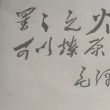 星星之火
可以燎原
毛泽